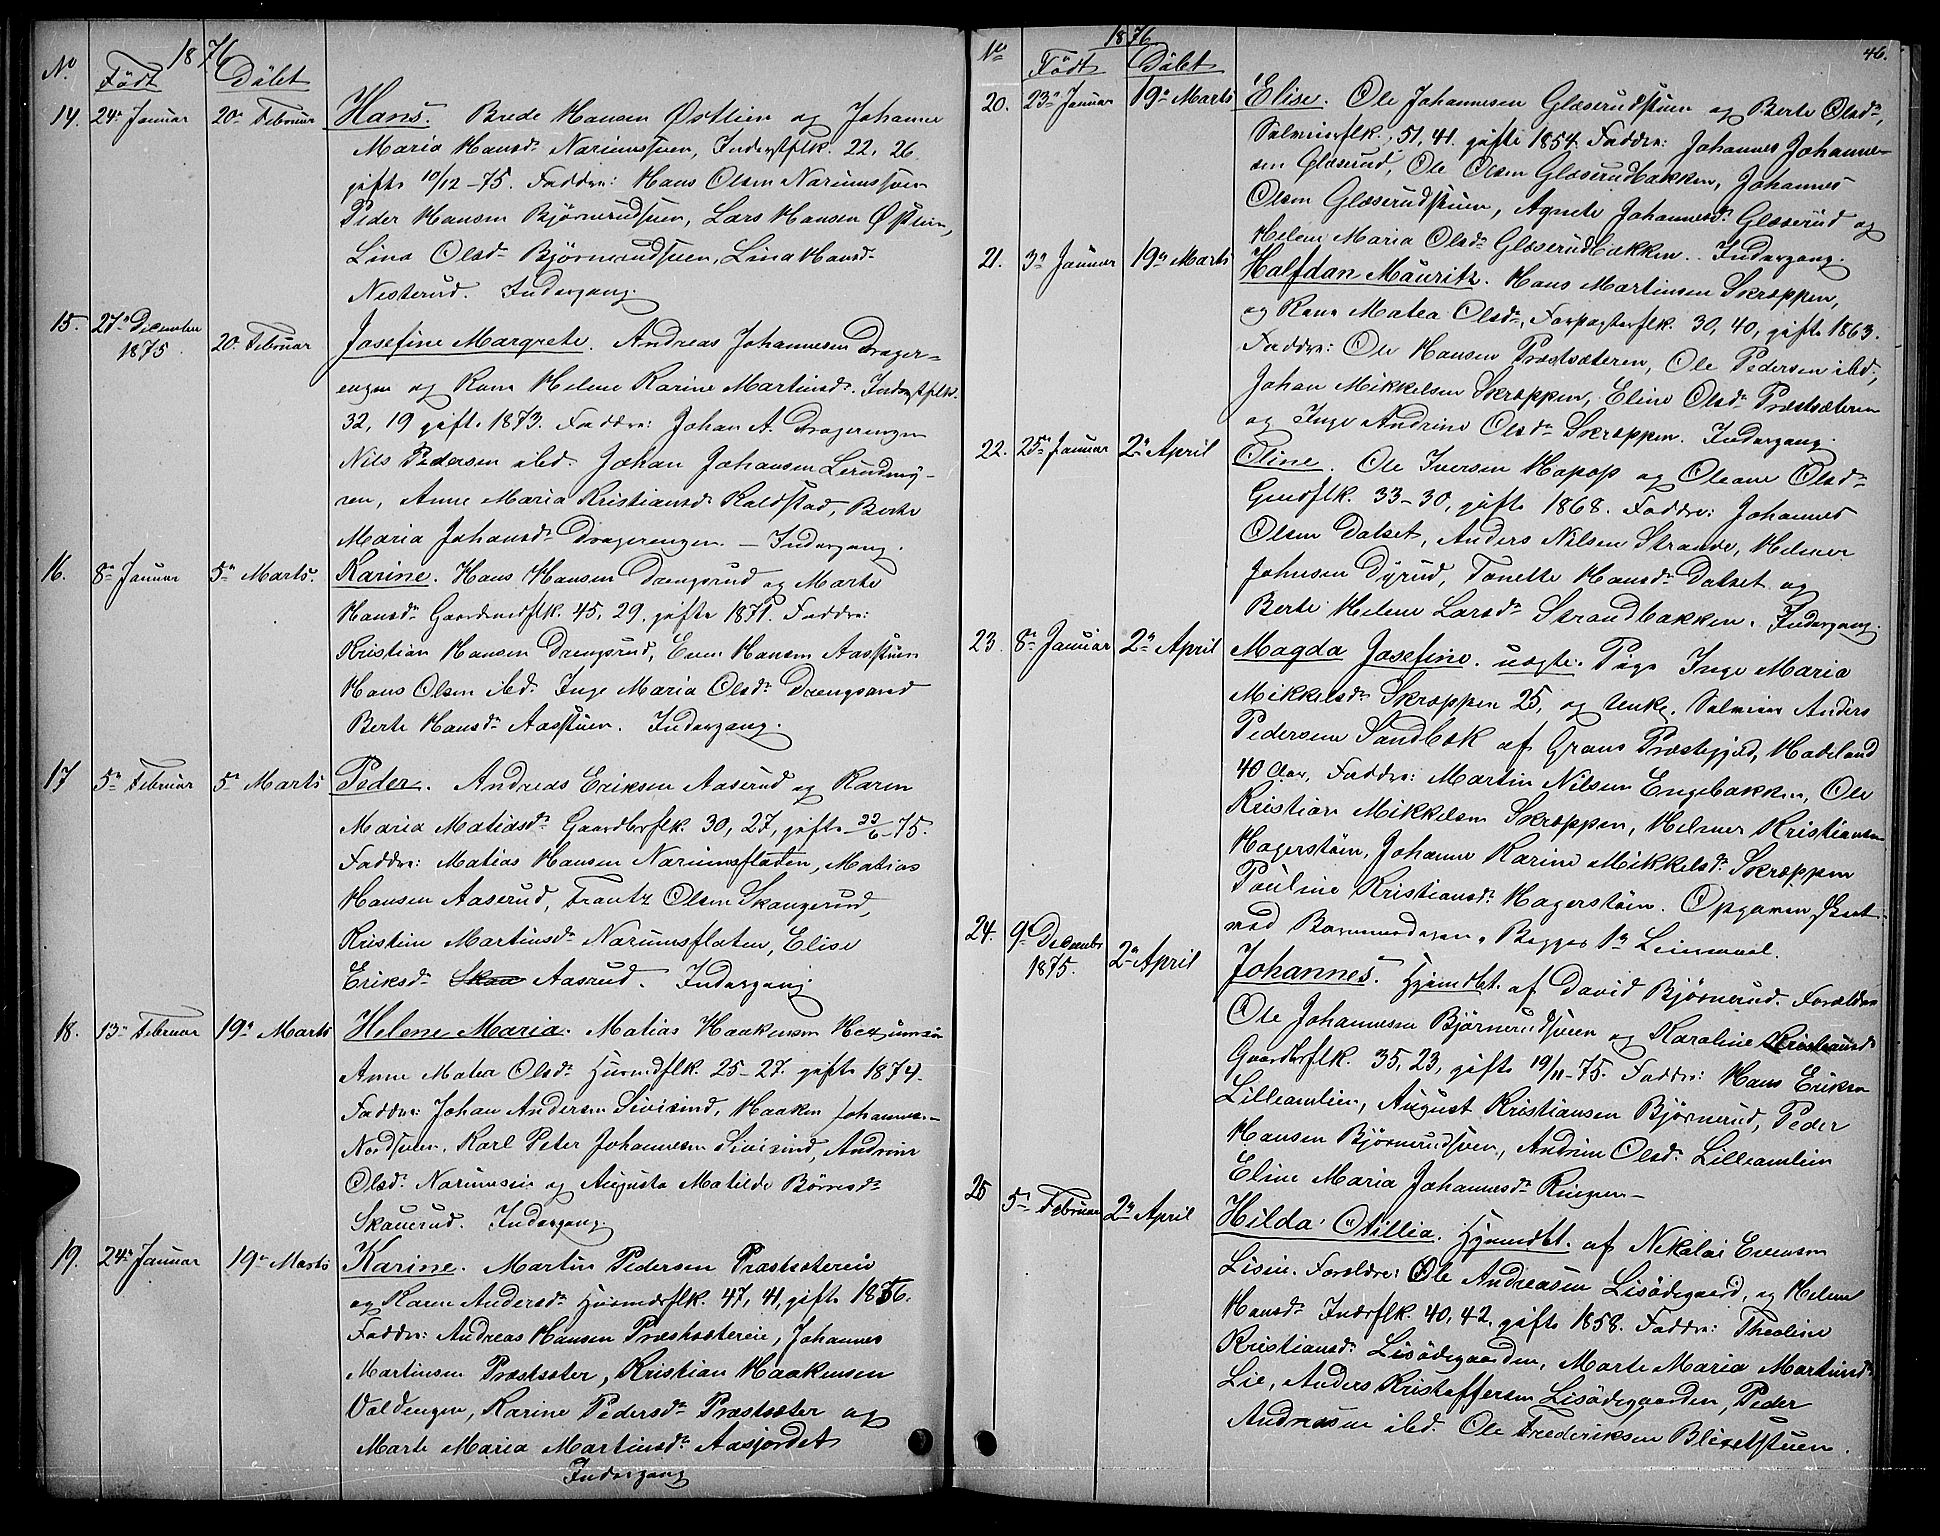 1876
No Född Döbt
14. 24de Januar 20de Februar Hans. Brede Hansen Østlien og Johanne
Maria Hansdr Nariumsveen, Inderstflk. 22, 26.
gifte 10/12-75. Faddre: Hans Olsen Nariumsveen
Peder Hansen Bjørnerudsveen, Lars Hansen Østlien,
Lina Olsdr Bjørnerudsveen, Lina Hansdr
Nesterud. Indergang.
15. 27de December 1875 20. Februar Josefine Margrete. Andreas Johannesen Drager-
engen og Kone Helene Karine Martinsdr Inderstflk.
32, 19 gifte 1873. Faddre: Johan A. Dragerengen
Nils Pedersen ibd. Johan Johansen Lerudmy-
ren, Anne Maria Kristiansdr Kaldstad, Berthe
Maria Johansdr Dragerengen. — Indergang.
16. 8de Januar 5te Marts. Karine. Hans Hansen Drengsrud og Marte
Hansdr Gaardmdflk. 45, 29. gifte 1871. Faddre:
Kristian Hansen Drengsrud, Even Hansen Aasstuen
Hans Olsen ibd. Inge Maria Olsdr Drengsrud
Berte Hansdr Aasstuen. Indergang.
17 5te Februar 5te Marts Peder. Andreas Eriksen Aaserud og Karen
Maria Matiasdr Gaardbrflk. 30, 27, gifte 22/6-75.
Faddre: Matias Hansen Nariumsflaten, Matias
Hansen Aaserud, Frantz Olsen Skangerud,
Kristine Martinsdr Nariumsflaten, Elise
Eriksdr Skau Aasrud. Indergang
18. 13de Februar 19de Marts Helene Maria. Matias Haakensen
Anne Matea Olsdr Husmdflk. 25-27. gifte 1874.
Faddre: Johan Andersen Sivisind, Haaken Johannes-
Nordstuen, Karl Peter Johannesen Sivisind, Andrine
Olsdr og Augusta Matilde Børresdr
Skauerud. Indergang.
19. 24de Januar 19de Marts Karine. Martin Pedersen Præstsætereie
og Karen Andersdr Husmdsflk. 47, 41, gifte 1856.
Faddre: Andreas Hansen Præstsætereie, Johannes
Martinsen Præstsæter, Kristian Haakensen
Valdengen, Karine Pedersdr Præstsæter og
Marte Maria Martinsdr Aasjordet
Indergang
46.
1876
No Född Döbt
20. 23de Januar 19de Marts Elise. Ole Johannesen Glæserudstuen og Berte Olsdr,
Selveierflk. 51, 41. gifte 1854. Faddre: Johannes Johanne-
sen Glæserud, Ole Olsen Glæserudbakken, Johannes
Olsen Glæserudstuen, Agnete Johannesdr Glæserud og
Helene Maria Olsdr Glæserudbakken. Indergang.
21. 3de Januar 19de Marts Halfdan Mauritz. Hans Martinsen Skræppen,
og Kone Matea Olsdr, Forpagterflk. 30, 40, gifte 1863.
Faddre: Ole Hansen Præstsæteren, Ole Pedersen ibd,
Johan Mikkelsen Skræppen, Eline Olsdr Præstsæteren
og Inge Andrine Olsdr Skræppen. Indergang.
22. 25de Januar 2den April Oline. Ole Iversen Hapop og Oleane Olsdr
Grndflk. 33-30, gifte 1868. Faddre: Johannes
Olsen Dalset, Anders Nilsen Strande, Helmer
Johnsen Dyrud, Tonette Hansdr Dalset og
Berte Helene Larsdr Strandbakken. Indergang.
23. 8de Januar 2den April Magda Josefine. uægte. Pige Inge Maria
Mikkelsdr Skræppen 25, og Unke. Selveier Anders
Pedersen Sandbæk af Grans Præstegjæld, Hadeland
40 Aar, Faddre: Martin Nilsen Engebakken, Ole
Kristian Mikkelsen Skræppen, Helmer Kristiansen
Hagerstøen, Johanne Karine Mikkelsdr Skræppen
Pauline Kristiansdr Hagerstøen. Opgaven
med Barnemoderen. Begges 1ste Leiermaal.
24. 9de Decembr 1875. 2den April Johannes. Hjemdbt. af David Bjørnerud. Forældre
Ole Johannesen Bjørnerudsveen og Karoline Kristiansdr
Gaardbrflk. 35, 23, gifte 19/11-75. Faddre: Hans Eriksen
Lilleamlien, August Kristiansen Bjørnerud, Peder
Hansen Bjørnerudsveen, Andrine Olsdr Lilleamlien
Eline Maria Johannesdr Ringen—
25 5te Februar 2den April Hilda Otillia. Hjemdbt. af Nikolai Evensen
Lisen. Forældre: Ole Andreasen Lisødegaard, og Helene
Hansdr Inderflk. 40, 42, gifte 1858. Faddre: Theoline
Kristiansdr Lisødegaarden, Marte Maria Martinsdr
Lie, Anders Kristoffersen Lisødegaarden, Peder
Andreasen ibd. Ole Frederiksen Blixetstuen.